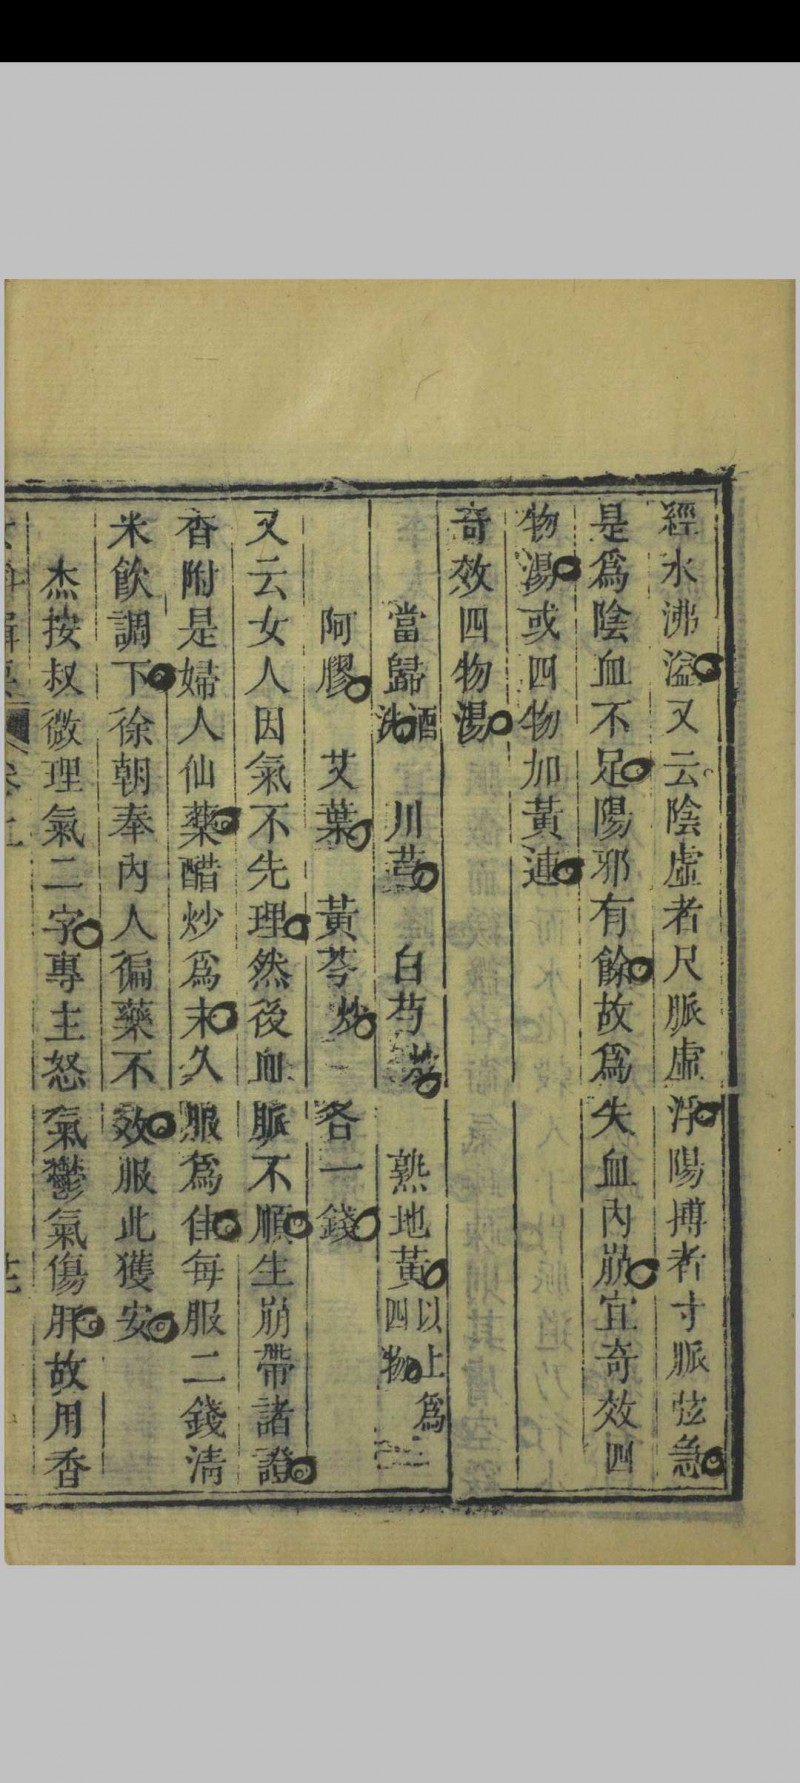 經水沸溢又云陰虛者尺脈虛浮陽搏者寸脈弦急
是爲陰血不足陽邪有餘故爲失血內崩宜奇效四
物湯或四物加黃連
奇效四物湯
當歸酒洗 川芎 白芍 熟地黃以上爲四物
阿膠 艾葉 黃芩炒 各一錢
又云女人因氣不先理然後血脈不順生崩帶諸證
香附是婦人仙藥醋炒爲末久服爲佳每服二錢清
米飲調下徐朝奉內人徧藥不效服此獲安
杰按叔微理氣二字專主怒氣鬱氣傷肝故用香